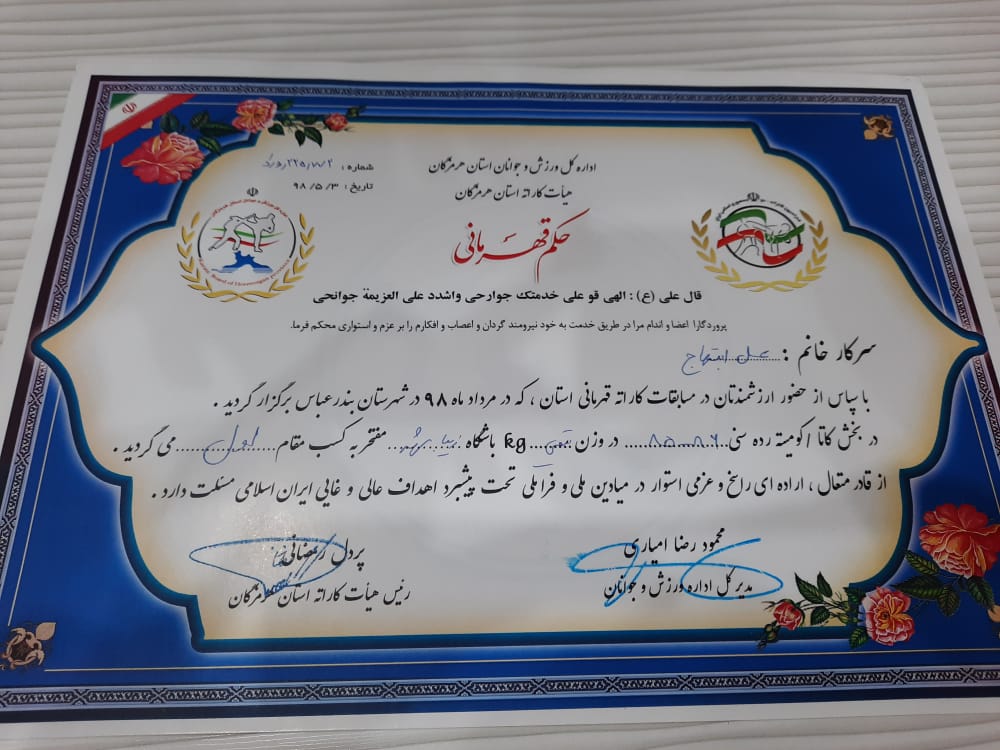 اداره کل ورزش و جوانان استان هرمزگان
هیأت کاراته استان هرمزگان
شماره :
تاریخ : ۹۸/۵/۳
حکم قهرمانی
قال علی (ع) : الهی قو علی خدمتک جوارحی واشدد علی العزیمة جوانحی
پروردگارا اعضا و اندام مرا در طریق خدمت به خود نیرومند گردان و اعصاب و افکارم را بر عزم و استواری محکم فرما.
سرکار خانم : ابتهاج
با سپاس از حضور ارزشمندتان در مسابقات کاراته قهرمانی استان ، که در مرداد ماه ۹۸ در شهرستان بندرعباس برگزار گردید .
در بخش کاتا / کومیته رده سنی ۸۶-۸۵ در وزن kg باشگاه مفتخر به کسب مقام اول می گردید .
از قادر متعال ، اراده ای راسخ و عزمی استوار در میادین ملی و فراملی تحت پیشبرد اهداف عالی و غایی ایران اسلامی مسئلت دارد .
محمود رضا امیاری
مدیر کل اداره ورزش و جوانان
پردل رمضانی
رئیس هیأت کاراته استان هرمزگان